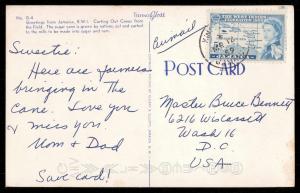 No. G-4
Greetings from Jamaica, B.W.I. Carting Out Canes from
the Field. The sugar cane is grown by natives, cut and carted
to the mills to be made into sugar and rum.
Sweetie:
Here are farmers
bringing in the
cane. Love you
& miss you.
Mom & Dad
Save card!
Airmail
THE WEST INDIES
FEDERATION 1958
JAMAICA
POST CARD
Master Bruce Bennett
6216 Wiscassett
Wash 16
D.C.
USA